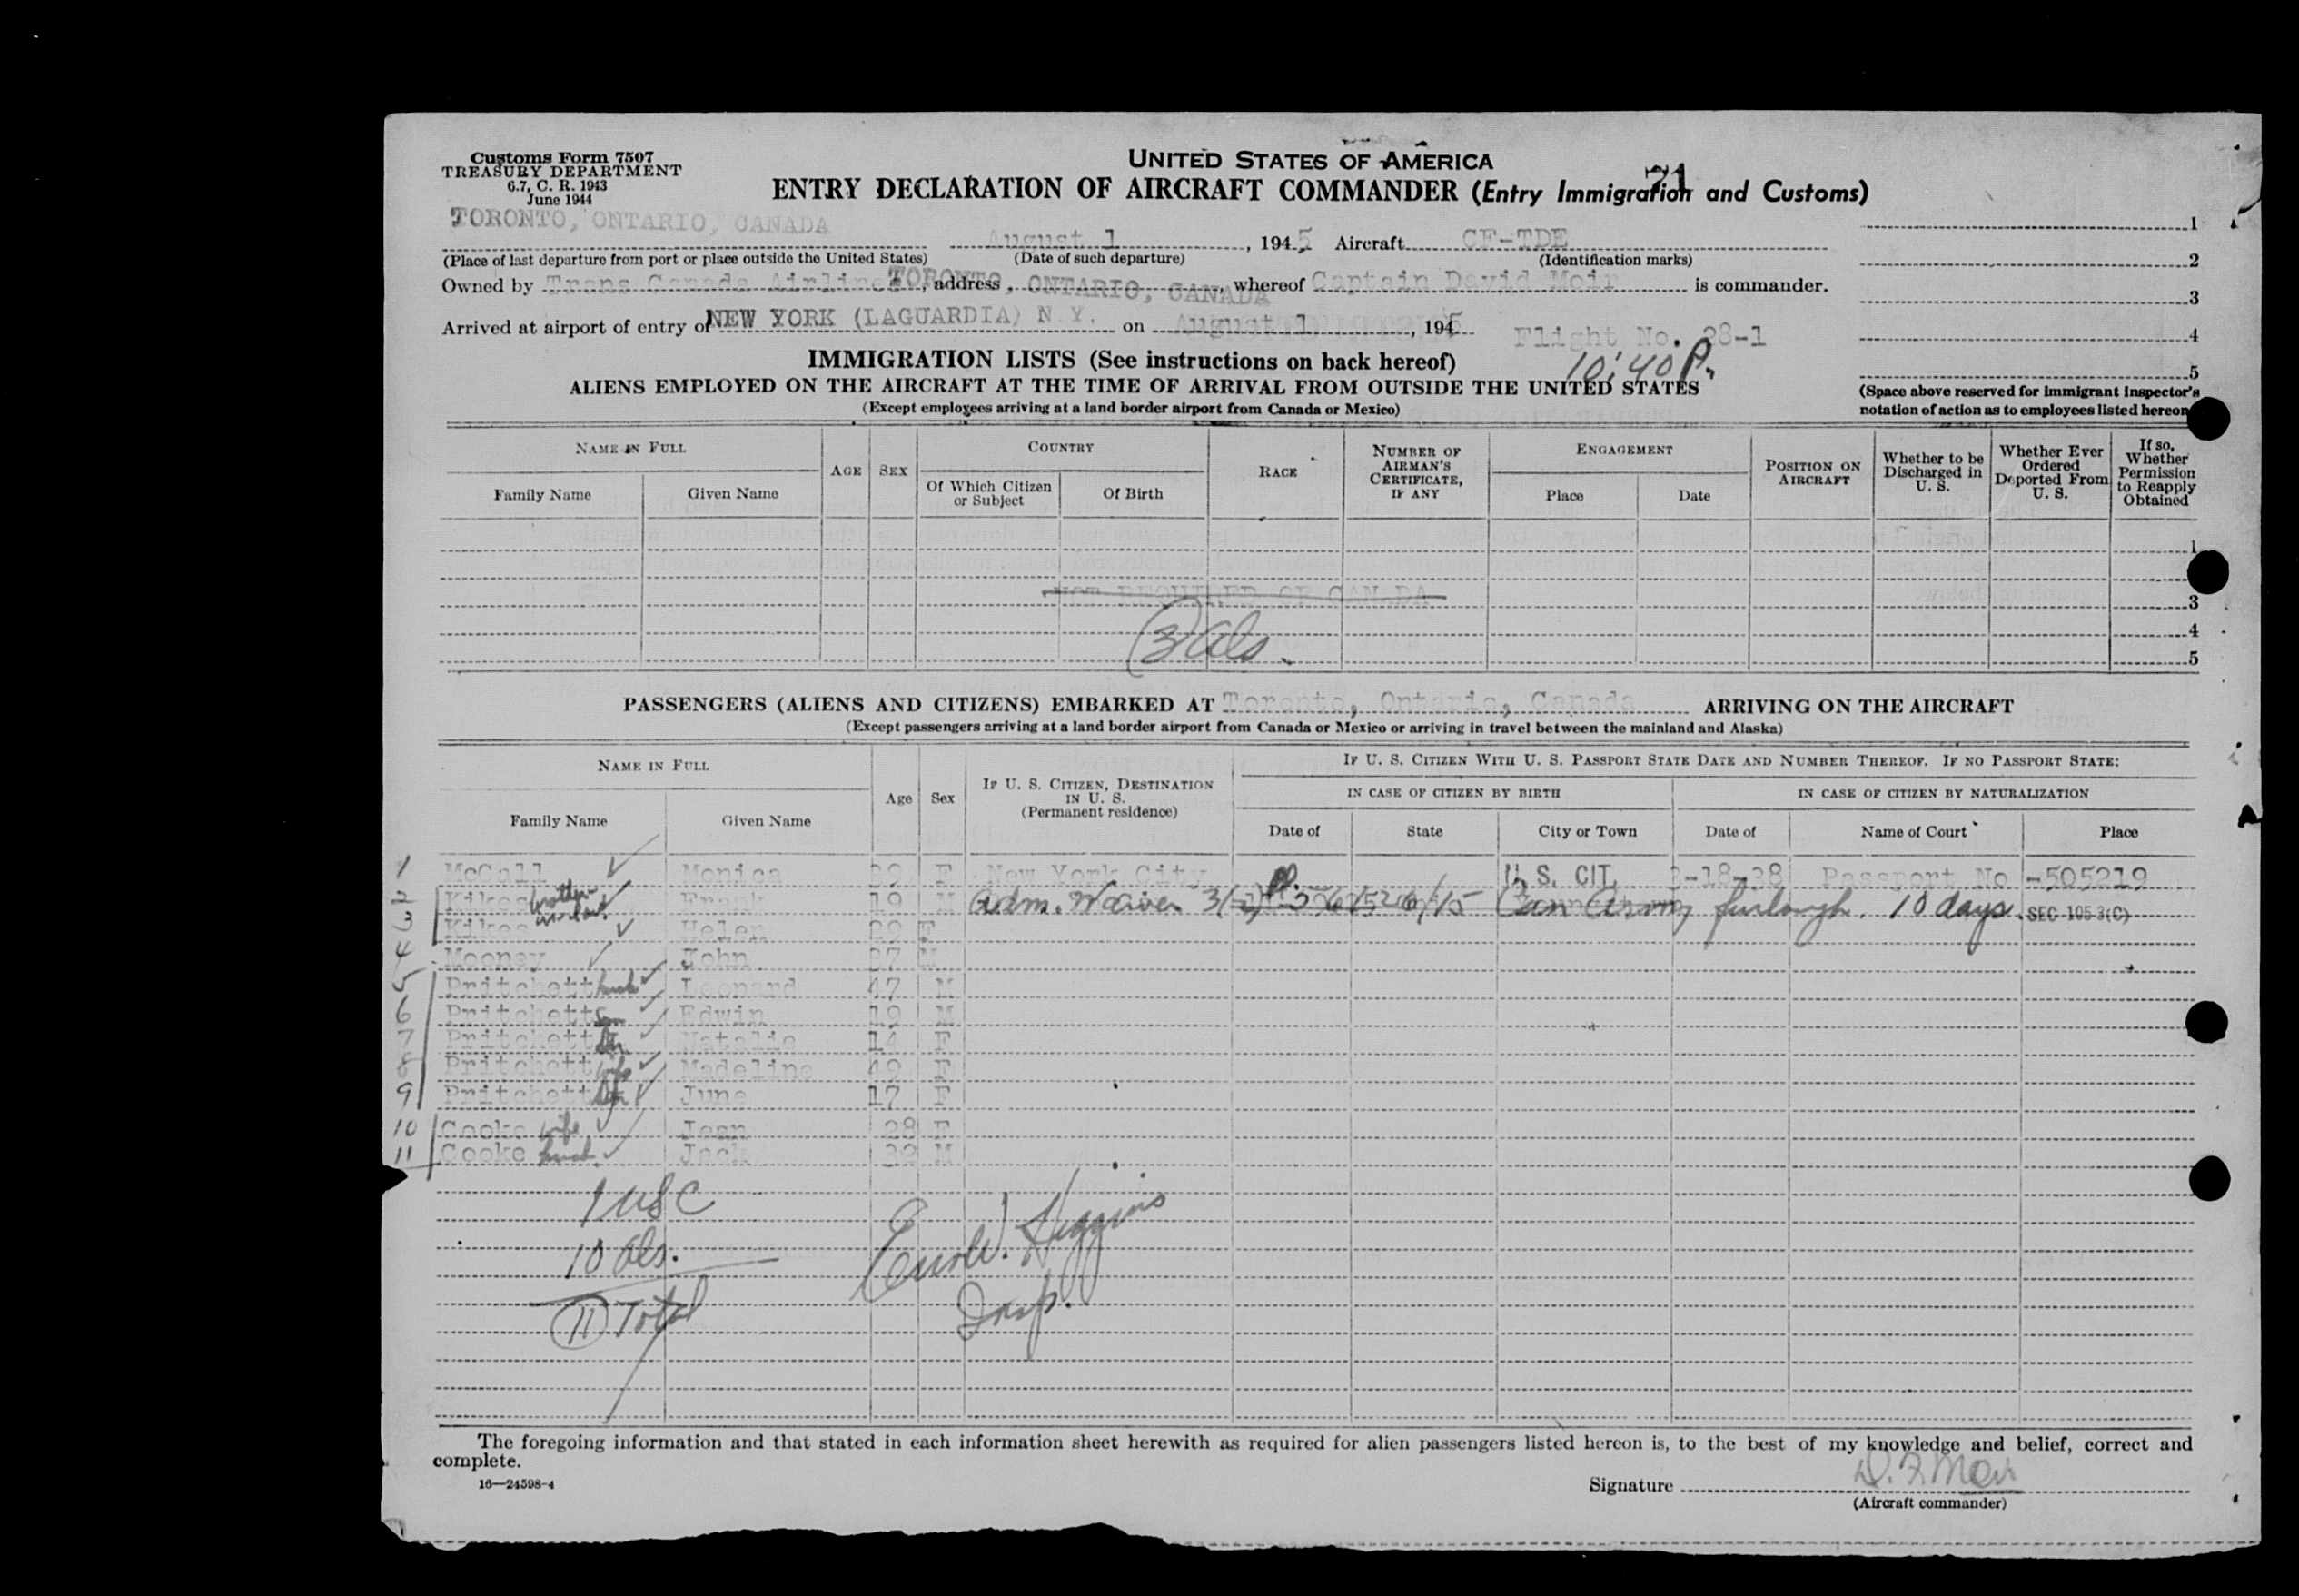 Customs Form 7507
TREASURY DEPARTMENT
6.7, C. R. 1943
June 1944
UNITED STATES OF AMERICA
ENTRY DECLARATION OF AIRCRAFT COMMANDER (Entry Immigration and Customs)
21
TORONTO, ONTARIO, CANADA August 1, 1945 Aircraft CF-TDE
(Place of last departure from port or place outside the United States) (Date of such departure) (Identification marks)
Owned by Trans Canada Airlines, address TORONTO, ONTARIO, CANADA, whereof Captain David Moir is commander.
Arrived at airport of entry of NEW YORK (LAGUARDIA) N.Y. on August 1, 1945 Flight No. 28-1
10:40 P.
1
2
3
4
5
(Space above reserved for immigrant inspector's
notation of action as to employees listed hereon
IMMIGRATION LISTS (See instructions on back hereof)
ALIENS EMPLOYED ON THE AIRCRAFT AT THE TIME OF ARRIVAL FROM OUTSIDE THE UNITED STATES
(Except employees arriving at a land border airport from Canada or Mexico)
NAME IN FULL
Family Name Given Name
AGE SEX
COUNTRY
Of Which Citizen or Subject Of Birth
RACE
NUMBER OF AIRMAN'S CERTIFICATE, IF ANY
ENGAGEMENT
Place Date
POSITION ON AIRCRAFT
Whether to be Discharged in U. S.
Whether Ever Ordered Deported From U. S.
If so, Whether Permission to Reapply Obtained
1
NOT REQUIRED OF CANADA
3
4
5
(3) als.
PASSENGERS (ALIENS AND CITIZENS) EMBARKED AT Toronto, Ontario, Canada ARRIVING ON THE AIRCRAFT
(Except passengers arriving at a land border airport from Canada or Mexico or arriving in travel between the mainland and Alaska)
NAME IN FULL
Family Name Given Name
Age Sex
IF U. S. CITIZEN, DESTINATION IN U. S. (Permanent residence)
IF U. S. CITIZEN WITH U. S. PASSPORT STATE DATE AND NUMBER THEREOF. IF NO PASSPORT STATE:
IN CASE OF CITIZEN BY BIRTH IN CASE OF CITIZEN BY NATURALIZATION
Date of State City or Town Date of Name of Court Place
1 McCall Monica F New York City U.S. CIT. -18-38 Passport No -505219
2 Frank 19 M Adm. Waiver Can Army furlough. 10 days. SEC 105-3(C)
3 Helen F
4 Mooney John 37 M
5 Pritchett husb Leonard 47 M
6 Pritchett son Edwin 19 M
7 Pritchett dtr Natalie 14 F
8 Pritchett wife Madeline 49 F
9 Pritchett dtr June 17 F
10 Cooke wife Jean 28 F
11 Cooke husb. Jack 32 M
1 USC
10 als.
(11) Total
Higgins
Insp.
The foregoing information and that stated in each information sheet herewith as required for alien passengers listed hereon is, to the best of my knowledge and belief, correct and
complete.
16—24598-4
Signature D. F. Moir
(Aircraft commander)